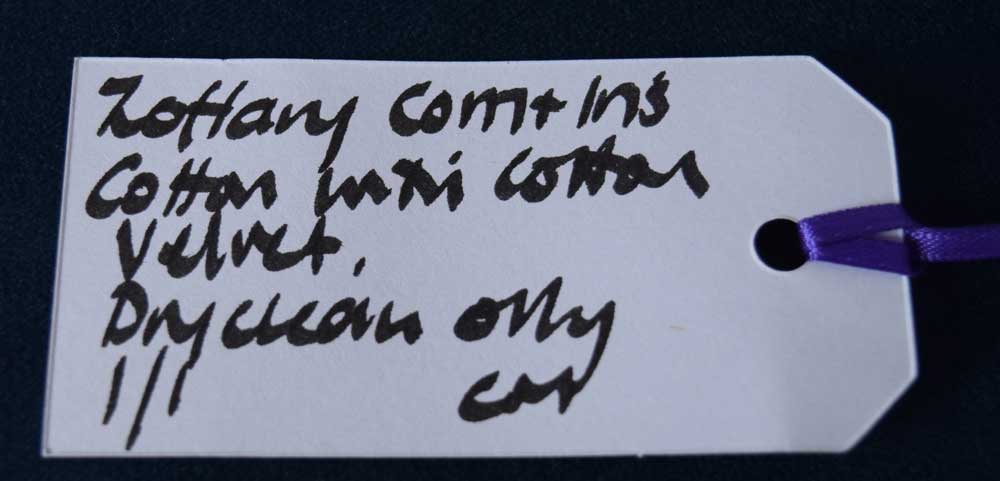 Zoffany Com+Ins
Cotton with Cotton
Velvet.
Dryclean only
1/1 car